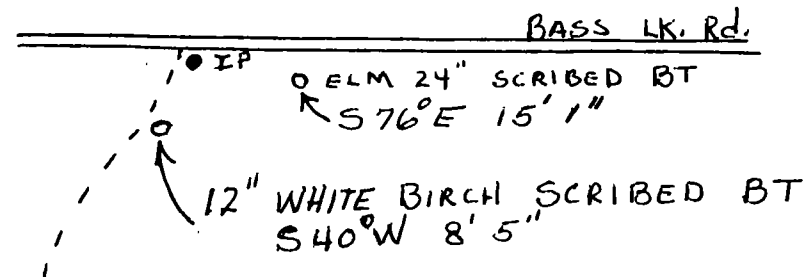 BASS LK. Rd.
IP
ELM 24" SCRIBED BT
S 76° E 15' 1"
12" WHITE BIRCH SCRIBED BT
S 40° W 8' 5"